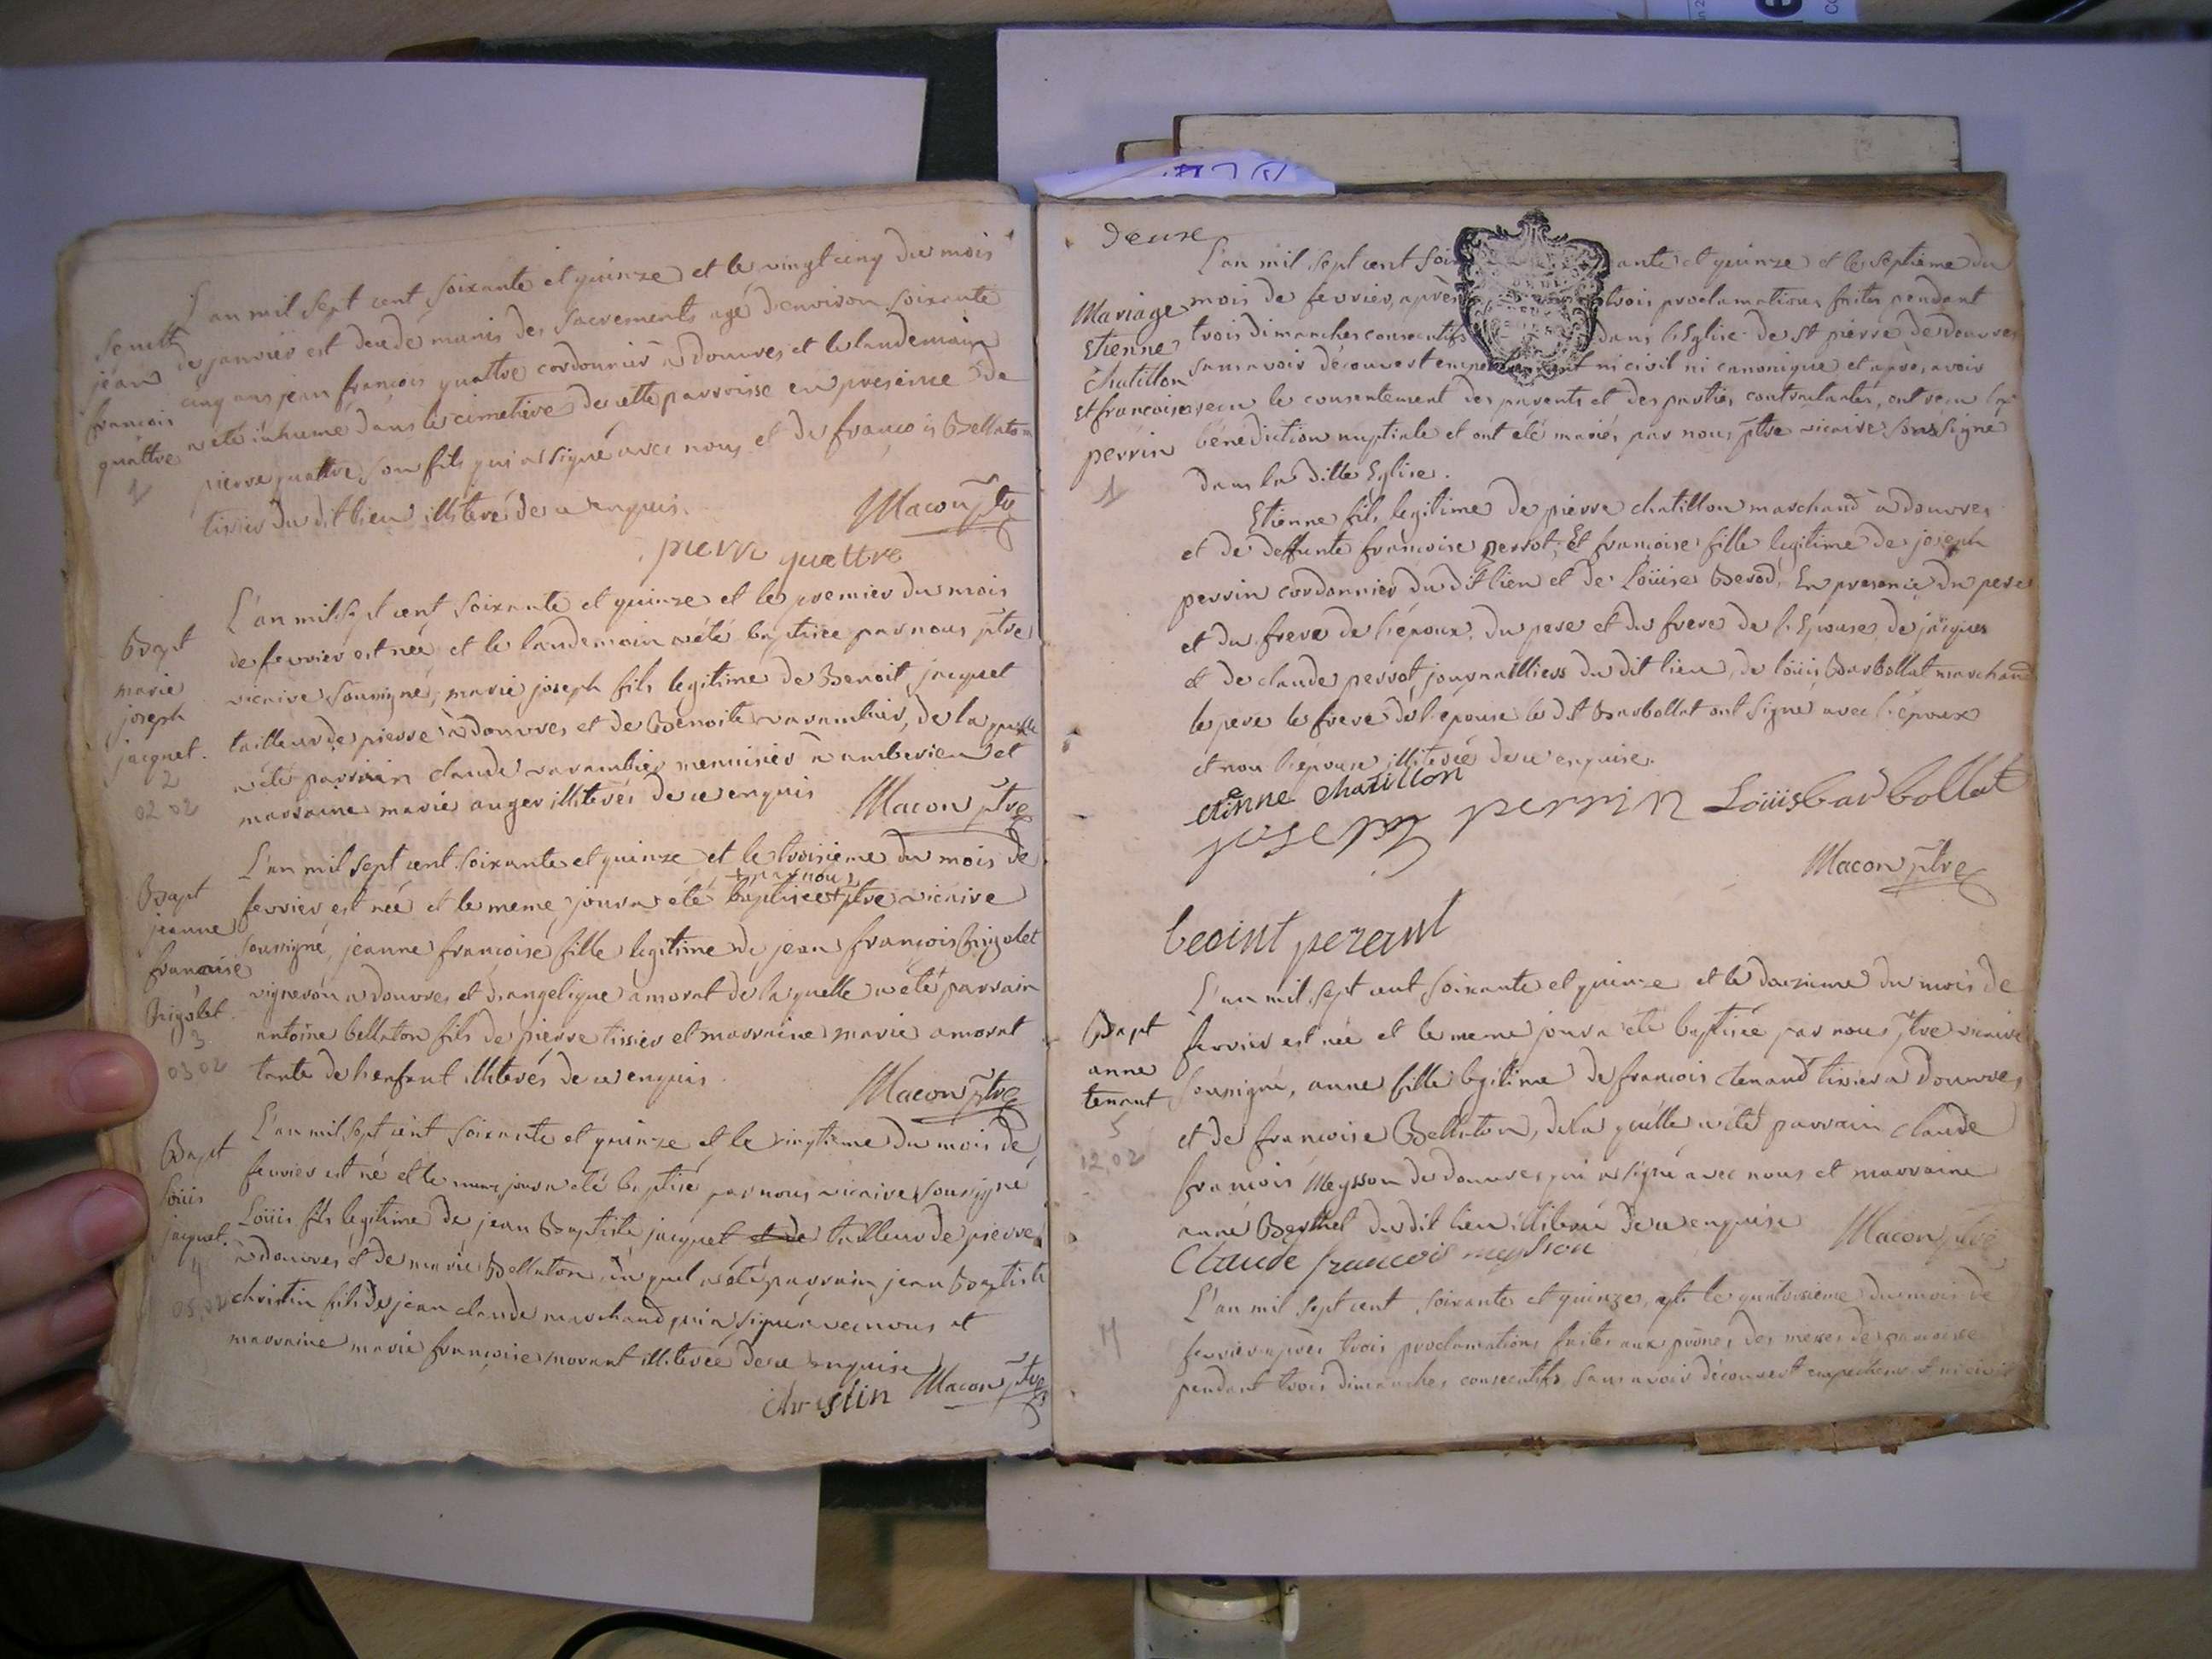 L'an mil sept cent soixante et quinze et le vingt cinq du mois
de janvier est decedé munis des sacrements agé d'environ soixante
cinq ans jean françois quattre cordonnier a douvres et le landemain
a eté inhumé dans le cimetiere de cette parroisse en presence de
pierre quattre son fils qui a signé avec nous et de françois Bellaton
tissier du dit lieu illiteré de ce enquis.
Macon ptre
pierre quattre
jean
francois
quattre
L'an mil sept cent soixante et quinze et le premier du mois
de fevrier est née et le landemain a été baptisée par nous ptre
vicaire soussigné, marie joseph fils legitime de Benoit jacquet
tailleur de pierre a douvres et de Benoite varambier, de la quelle
a eté parrain claude varambier menuisier a amberieu et
marraine marie auger illiterés de ce enquis
Macon ptre
Bapt
marie
joseph
jacquet.
2
02 02
L'an mil sept cent soixante et quinze et le troisieme du mois de
+ par nous
fevrier est née et le meme jour a été baptisée + ptre vicaire
soussigné, jeanne françoise fille legitime de jean françois Brigolet
vigneron a douvres et d'angelique amorat de la quelle a été parrain
antoine bellaton fils de pierre tissier et marraine marie amorat
tante de l'enfant illiterés de ce enquis.
Macon ptre
Bapt
jeanne
francaise
Brigolet.
3
03 02
L'an mil sept cent soixante et quinze et le vingtieme du mois de
fevrier est né et le meme jour a eté baptisé par nous vicaire soussigné
Loüis fils legitime de jean Baptiste jacquet et de tailleur de pierre
a douvres et de marie Bellaton, du quel a été parrain jean Baptiste
christin fils de jean claude marchand qui a signé avec nous et
marraine marie françoise morant illiterée de ce enquise
Christin Macon ptre
Bapt
loüis
jacquet.
4
05,02
deuxe
L'an mil sept cent soixante et quinze et le septieme du
mois de fevrier, après trois proclamations faites pendant
trois dimanches consecutifs dans l'Eglise de st pierre de Douvres
sans avoir découvert empechement ni civil ni canonique et apres avoir
recu le consentement des parents et des parties contractantes, ont recu la
bénédiction nuptiale et ont été mariés par nous ptre vicaire soussigné
dans la ditte Eglise.
Etienne fils legitime de pierre chatillon marchand a douvres
et de deffunte françoise perrot, Et françoise fille legitime de joseph
perrin cordonnier du dit lieu et de Loüise Berod, En presence du pere
et du frere de l'époux, du pere et du frere de l'Epouse, de jacques
et de claude perrot journalliers du dit lieu, de loüis Barbollat marchand
le pere le frere de l'épouse le dit Barbollat ont signé avec l'époux
et non l'epouse illiterée de ce enquise.
Mariage
Etienne
chatillon
et francoise
perrin
1
etienne chatillon
joseph perrin Loüis barbollat
Macon ptre
L'an mil sept cent soixante et quinze et le douzieme du mois de
fevrier est née et le meme jour a été baptisée par nous ptre vicaire
soussigné, anne fille legitime de francois tenand tissier a Douvres
et de francoise Bellaton, de la quelle a été parrain claude
francois Meysson de douvres qui a signé avec nous et marraine
anne Berthet du dit lieu illiterée de ce enquise
Macon ptre
Claude francois meysson
Bapt
anne
tenant
5
12,02
L'an mil sept cent soixante et quinze, et le quatorsieme du mois de
fevrier après trois proclamations faites aux prônes des messes de paroisse
pendant trois dimanches consecutifs sans avoir découvert empechement ni civil